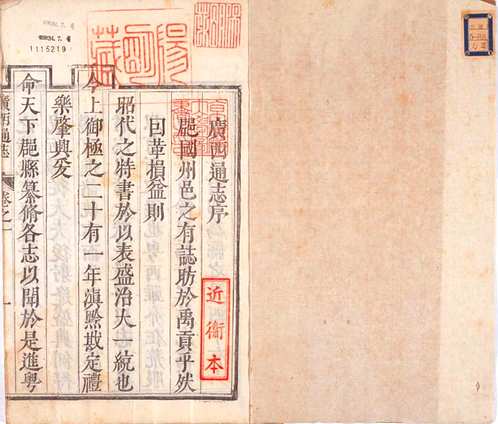 廣西通志序
郡國州邑之有誌昉於禹貢乎然
因革損益則
昭代之特書於以表盛治大一統也
今上御極之二十有一年滇黔戡定禮
樂肇興爰
命天下郡縣纂修各志以聞於是進粵
廣西通志
卷之一
近衛本
1115219